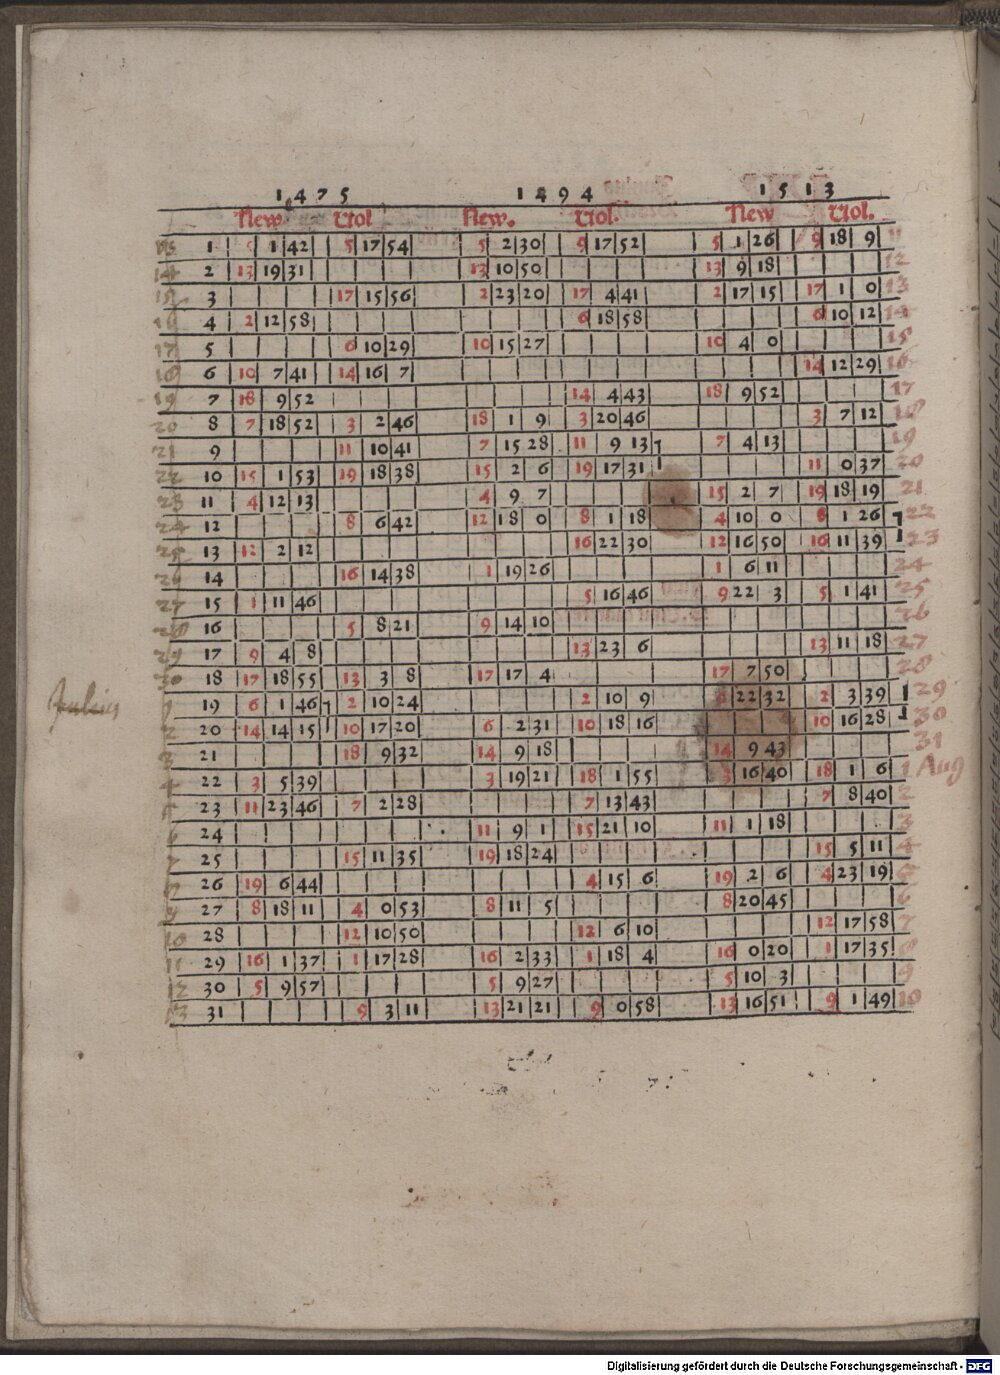 1475 1494 1513
New Vol New. Vol. New Vol.
13 1 5 1 42 5 17 54 5 2 30 9 17 52 5 1 26 9 18 9 11
14 2 13 19 31 13 10 50 13 9 18 12
15 3 17 15 56 2 23 20 17 4 41 2 17 15 17 1 0 13
16 4 2 12 58 6 18 58 6 10 12 14
17 5 6 10 29 10 15 27 10 4 0 15
18 6 10 7 41 14 16 7 14 12 29 16
19 7 18 9 52 14 4 43 18 9 52 17
20 8 7 18 52 3 2 46 18 1 9 3 20 46 3 7 12 18
21 9 11 10 41 7 15 28 11 9 13 7 4 13 19
22 10 15 1 53 19 18 38 15 2 6 19 17 31 11 0 37 20
23 11 4 12 13 4 9 7 15 2 7 19 18 19 21
24 12 8 6 42 12 18 0 8 1 18 4 10 0 8 1 26 22
25 13 12 2 12 16 22 30 12 16 50 16 11 39 23
26 14 16 14 38 1 19 26 1 6 11 24
27 15 1 11 46 5 16 46 9 22 3 5 1 41 25
28 16 5 8 21 9 14 10 26
29 17 9 4 8 13 23 6 13 11 18 27
30 18 17 18 55 13 3 8 17 17 4 17 7 50 28
Julius 1 19 6 1 46 2 10 24 2 10 9 22 32 2 3 39 29
2 20 14 14 15 10 17 20 6 2 31 10 18 16 10 16 28 30
3 21 18 9 32 14 9 18 14 9 43 31
4 22 3 5 39 3 19 21 18 1 55 3 16 40 18 1 6 1 Aug
5 23 11 23 46 7 2 28 7 13 43 7 8 40 2
6 24 11 9 1 15 21 10 11 1 18 3
7 25 15 11 35 19 18 24 15 5 11 4
8 26 19 6 44 4 15 6 19 2 6 4 23 19 5
9 27 8 18 11 4 0 53 8 11 5 8 20 45 6
10 28 12 10 50 12 6 10 12 17 58 7
11 29 16 1 37 1 17 28 16 2 33 1 18 4 16 0 20 1 17 35 8
12 30 5 9 57 5 9 27 5 10 3 9
13 31 9 3 11 13 21 21 9 0 58 13 16 51 9 1 49 10
Digitalisierung gefördert durch die Deutsche Forschungsgemeinschaft - DFG